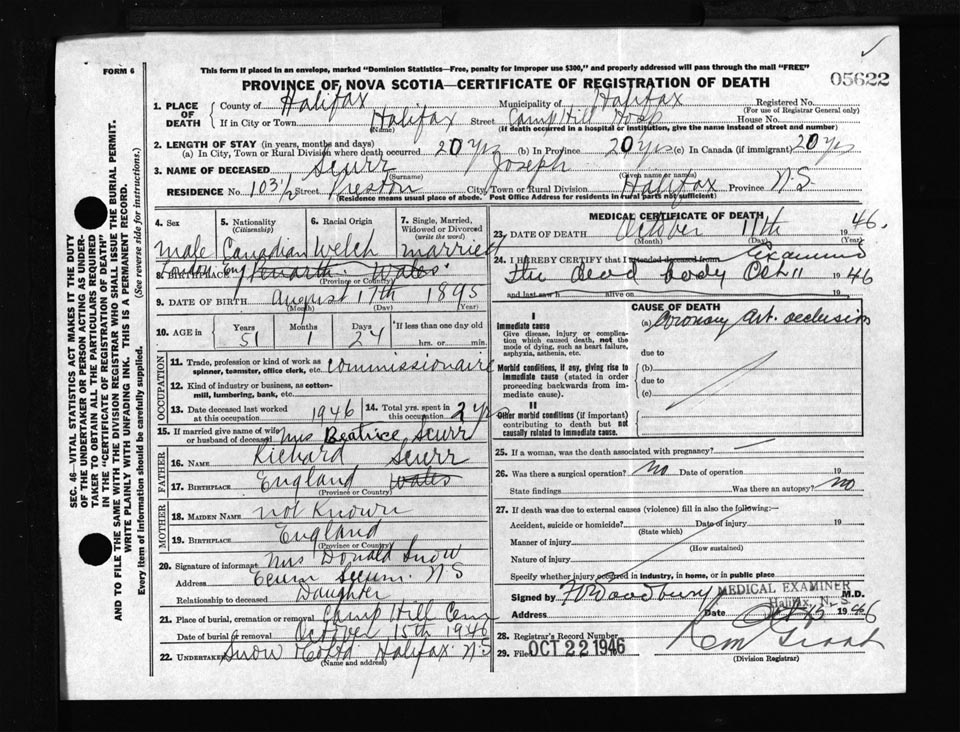 FORM 6
This form if placed in an envelope, marked "Dominion Statistics—Free, penalty for improper use $300," and properly addressed will pass through the mail "FREE"
PROVINCE OF NOVA SCOTIA—CERTIFICATE OF REGISTRATION OF DEATH
05622
1. PLACE OF DEATH County of Halifax Municipality of Halifax Registered No. (For use of Registrar General only)
If in City or Town Halifax (Name) Street Camp Hill Hosp House No.
(If death occurred in a hospital or institution, give the name instead of street and number)
2. LENGTH OF STAY (in years, months and days)
(a) In City, Town or Rural Division where death occurred 20 yrs (b) In Province 20 yrs (c) In Canada (if immigrant) 20 yrs
3. NAME OF DECEASED Scurr (Surname) Joseph (Given name or names)
RESIDENCE No. 103 1/2 Street Preston City, Town or Rural Division Halifax Province N.S.
(Residence means usual place of abode. Post Office Address for residents in rural parts not sufficient)
4. Sex
Male
5. Nationality (Citizenship)
Canadian
6. Racial Origin
Welch
7. Single, Married, Widowed or Divorced (write the word)
married
8. BIRTHPLACE London Eng Penarth Wales
(Province or Country)
9. DATE OF BIRTH August 17th 1895
(Month) (Day) (Year)
10. AGE in Years 51 Months 1 Days 24 If less than one day old hrs. or min.
OCCUPATION
11. Trade, profession or kind of work as spinner, teamster, office clerk, etc. Commissionaire
12. Kind of industry or business, as cotton-mill, lumbering, bank, etc.
13. Date deceased last worked at this occupation 1946 14. Total yrs. spent in this occupation 2 yrs
15. If married give name of wife or husband of deceased Mrs Beatrice Scurr
FATHER
16. NAME Richard Scurr
17. BIRTHPLACE England Wales
(Province or Country)
MOTHER
18. MAIDEN NAME not Known
19. BIRTHPLACE England
(Province or Country)
20. Signature of informant Mrs Donald Snow
Address Ecum Secum. N S
Relationship to deceased Daughter
21. Place of burial, cremation or removal Camp Hill Cem
Date of burial or removal October 15th 1946
22. UNDERTAKER Snow & Co Ltd Halifax N.S
(Name and address)
MEDICAL CERTIFICATE OF DEATH
23. DATE OF DEATH October 11th 1946.
(Month) (Day) (Year)
24. I HEREBY CERTIFY that I attended deceased from Examined
the dead body Oct 11 1946
and last saw h alive on 19
CAUSE OF DEATH
I
Immediate cause
Give disease, injury or complication which caused death, not the mode of dying, such as heart failure, asphyxia, asthenia, etc.
(a) Coronary Art. occlusion
due to
Morbid conditions, if any, giving rise to immediate cause (stated in order proceeding backwards from immediate cause).
(b)
due to
(c)
II
Other morbid conditions (if important) contributing to death but not causally related to immediate cause.
25. If a woman, was the death associated with pregnancy?
26. Was there a surgical operation? No Date of operation 19
State findings Was there an autopsy? No
27. If death was due to external causes (violence) fill in also the following:—
Accident, suicide or homicide? Date of injury 19
(State which)
Manner of injury
(How sustained)
Nature of injury
Specify whether injury occurred in industry, in home, or in public place
Signed by Woodbury MEDICAL EXAMINER M.D.
Halifax, N. S.
Address Date Oct 1946
28. Registrar's Record Number
29. Filed OCT 22 1946
(Division Registrar)
SEC. 46—VITAL STATISTICS ACT MAKES IT THE DUTY
OF THE UNDERTAKER OR PERSON ACTING AS UNDER-
TAKER TO OBTAIN ALL THE PARTICULARS REQUIRED
IN THE "CERTIFICATE OF REGISTRATION OF DEATH"
AND TO FILE THE SAME WITH THE DIVISION REGISTRAR WHO SHALL ISSUE THE BURIAL PERMIT.
WRITE PLAINLY WITH UNFADING INK. THIS IS A PERMANENT RECORD.
Every item of information should be carefully supplied. (See reverse side for instructions.)